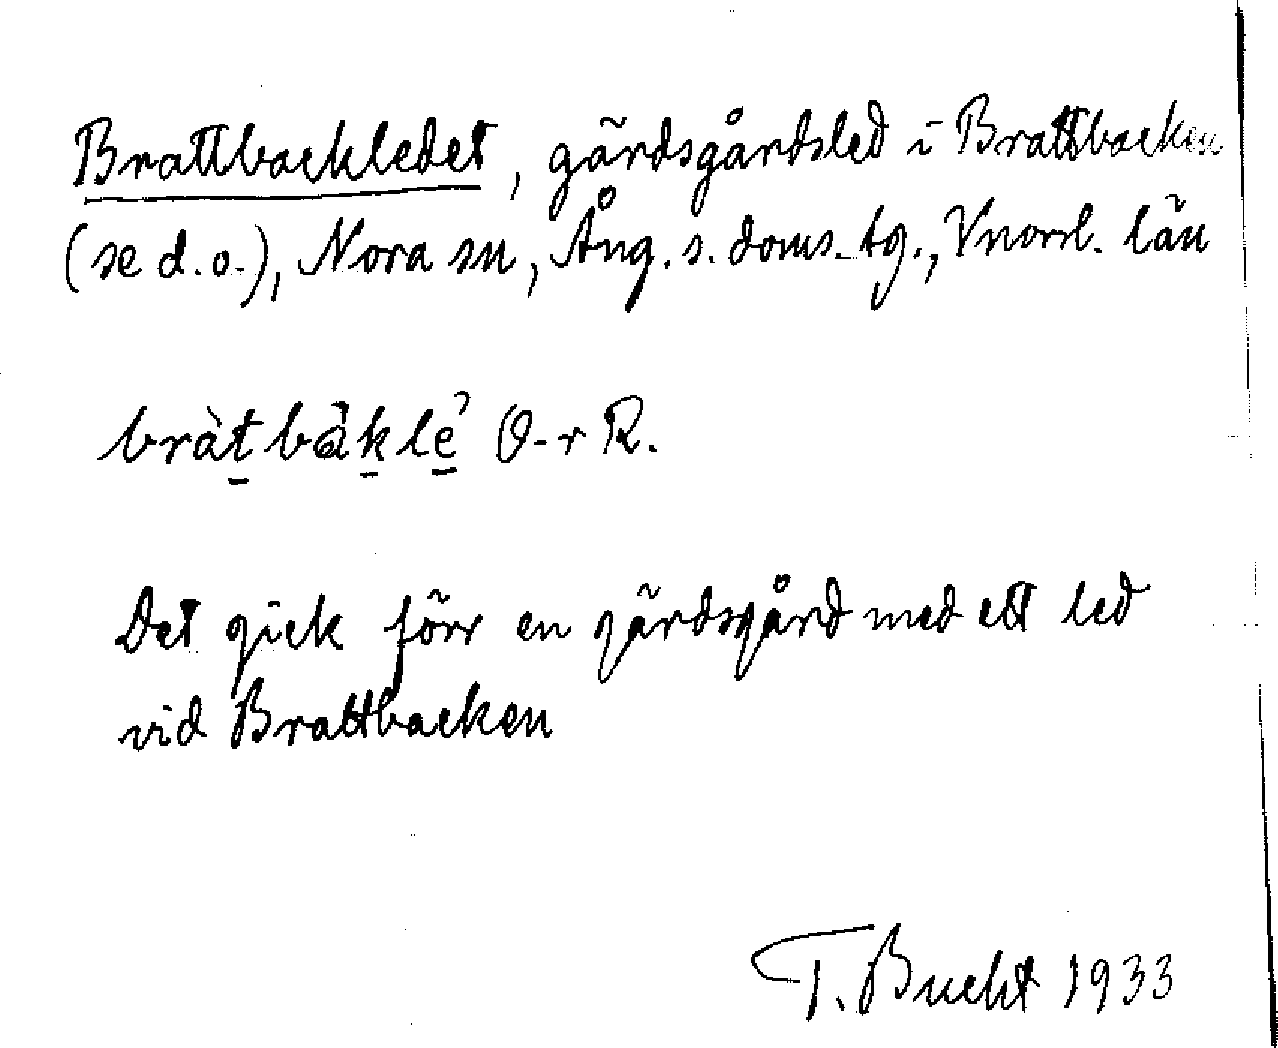 Brattbackledet, gärdsgårdsled i Brattbacken
(se d.o.), Nora sn, Ång. s. doms. tg., Vnorrl. län
bràt̲bàk̲le̲ʾ O-r R.
Det gick förr en gärdsgård med ett led
vid Brattbacken
T. Bucht 1933